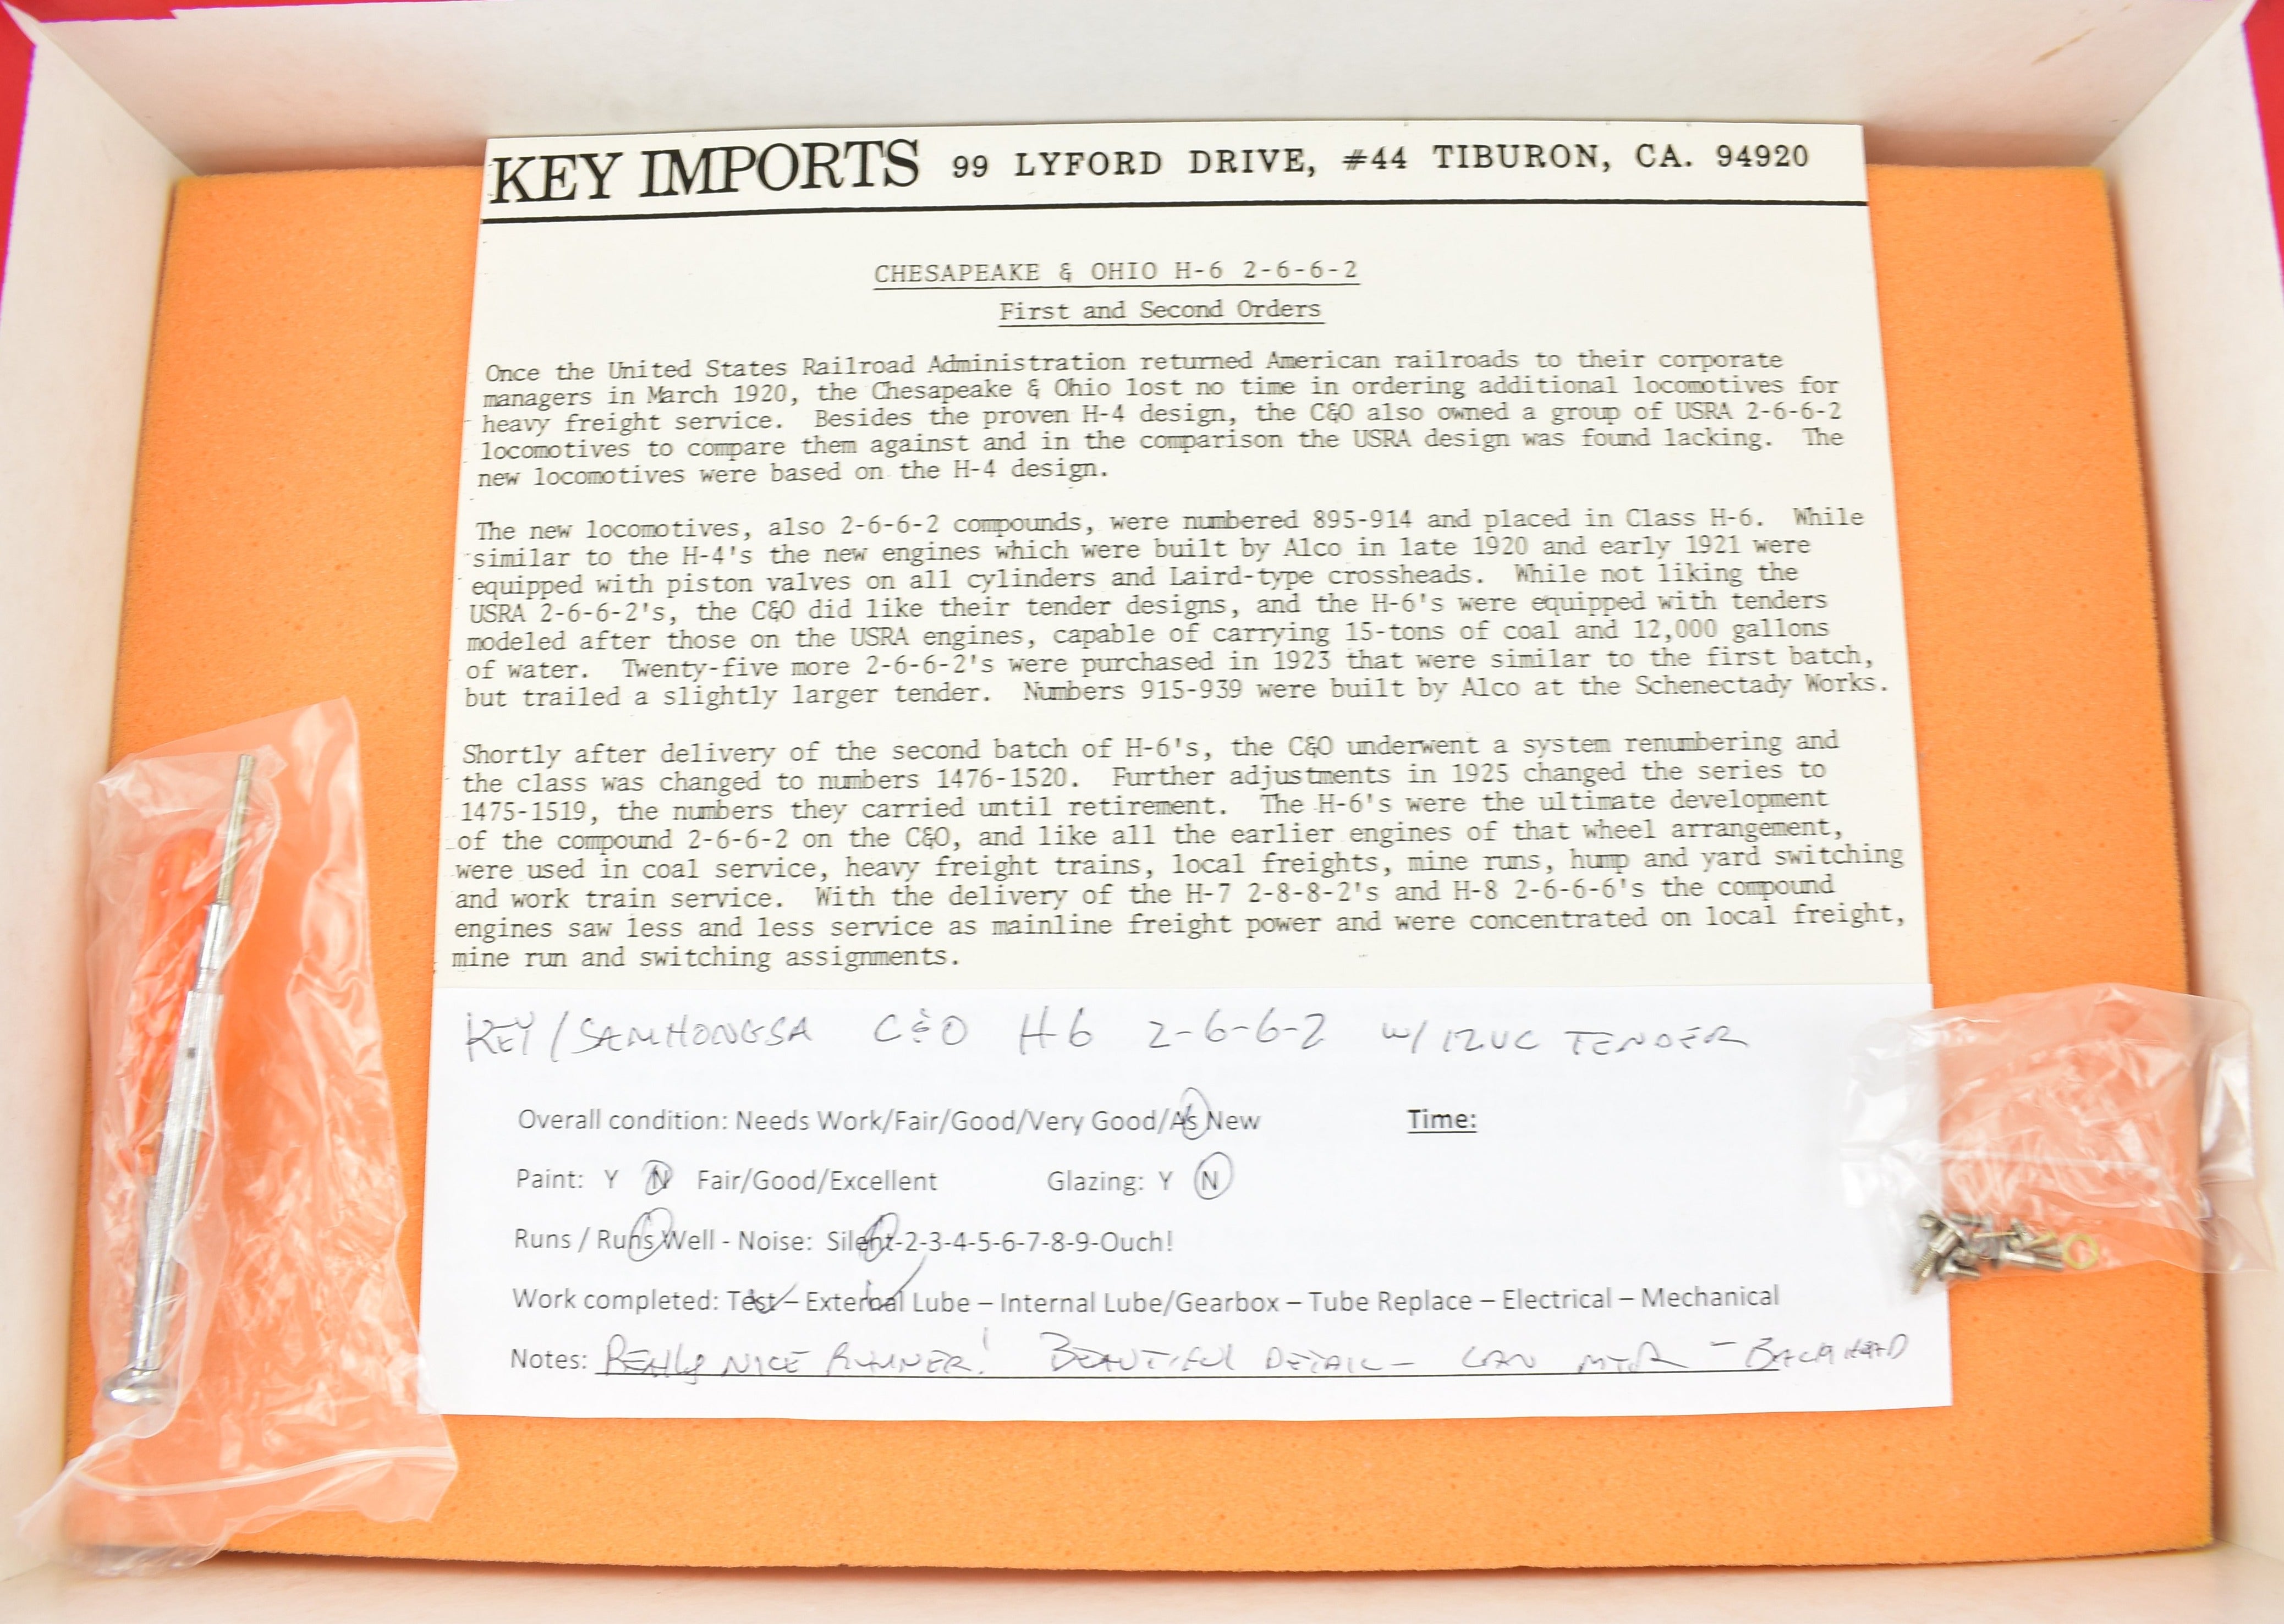 KEY IMPORTS 99 LYFORD DRIVE, #44 TIBURON, CA. 94920
CHESAPEAKE & OHIO H-6 2-6-6-2
First and Second Orders
Once the United States Railroad Administration returned American railroads to their corporate
managers in March 1920, the Chesapeake & Ohio lost no time in ordering additional locomotives for
heavy freight service. Besides the proven H-4 design, the C&O also owned a group of USRA 2-6-6-2
locomotives to compare them against and in the comparison the USRA design was found lacking. The
new locomotives were based on the H-4 design.
The new locomotives, also 2-6-6-2 compounds, were numbered 895-914 and placed in Class H-6. While
similar to the H-4's the new engines which were built by Alco in late 1920 and early 1921 were
equipped with piston valves on all cylinders and Laird-type crossheads. While not liking the
USRA 2-6-6-2's, the C&O did like their tender designs, and the H-6's were equipped with tenders
modeled after those on the USRA engines, capable of carrying 15-tons of coal and 12,000 gallons
of water. Twenty-five more 2-6-6-2's were purchased in 1923 that were similar to the first batch,
but trailed a slightly larger tender. Numbers 915-939 were built by Alco at the Schenectady Works.
Shortly after delivery of the second batch of H-6's, the C&O underwent a system renumbering and
the class was changed to numbers 1476-1520. Further adjustments in 1925 changed the series to
1475-1519, the numbers they carried until retirement. The H-6's were the ultimate development
of the compound 2-6-6-2 on the C&O, and like all the earlier engines of that wheel arrangement,
were used in coal service, heavy freight trains, local freights, mine runs, hump and yard switching
and work train service. With the delivery of the H-7 2-8-8-2's and H-8 2-6-6-6's the compound
engines saw less and less service as mainline freight power and were concentrated on local freight,
mine run and switching assignments.
KEY/SAMHONGSA C&O H6 2-6-6-2 W/12VC TENDER
Overall condition: Needs Work/Fair/Good/Very Good/As New Time:
Paint: Y N Fair/Good/Excellent Glazing: Y N
Runs / Runs Well - Noise: Silent-2-3-4-5-6-7-8-9-Ouch!
Work completed: Test – External Lube – Internal Lube/Gearbox – Tube Replace – Electrical – Mechanical
Notes: REALLY NICE RUNNER! BEAUTIFUL DETAIL - CAN MTR - BACKHEAD